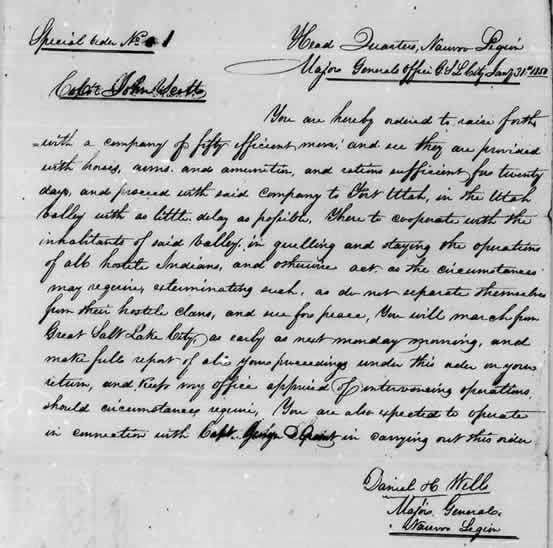 Special Order No. 1
Head Quarters, Nauvoo Legion
Major Generals Office G.S.L. City Jany 31st 1850
John Scott
You are hereby ordered to raise forth
=with a company of fifty efficient men; and see they are provided
with horses, arms and amunition, and rations sufficient for twenty
days, and proceed with said company to Fort Utah, in the Utah
Valley with as little delay as possible, there to cooperate with the
inhabitants of said Valley, in quelling and staying the operations
of all hostile Indians, and otherwise act, as the circumstances
may require, exterminating such, as do not separate themselves
from their hostile clans, and sue for peace, You will march from
Great Salt Lake City as early as next monday morning, and
make full report of all your proceedings under this order on your
return, and keep my office apprised of intervening operations
should circumstances require, You are also expected to operate
in connection with Capt. George D Grant in carrying out this order
Daniel H Wells
Major General.
Nauvoo Legion